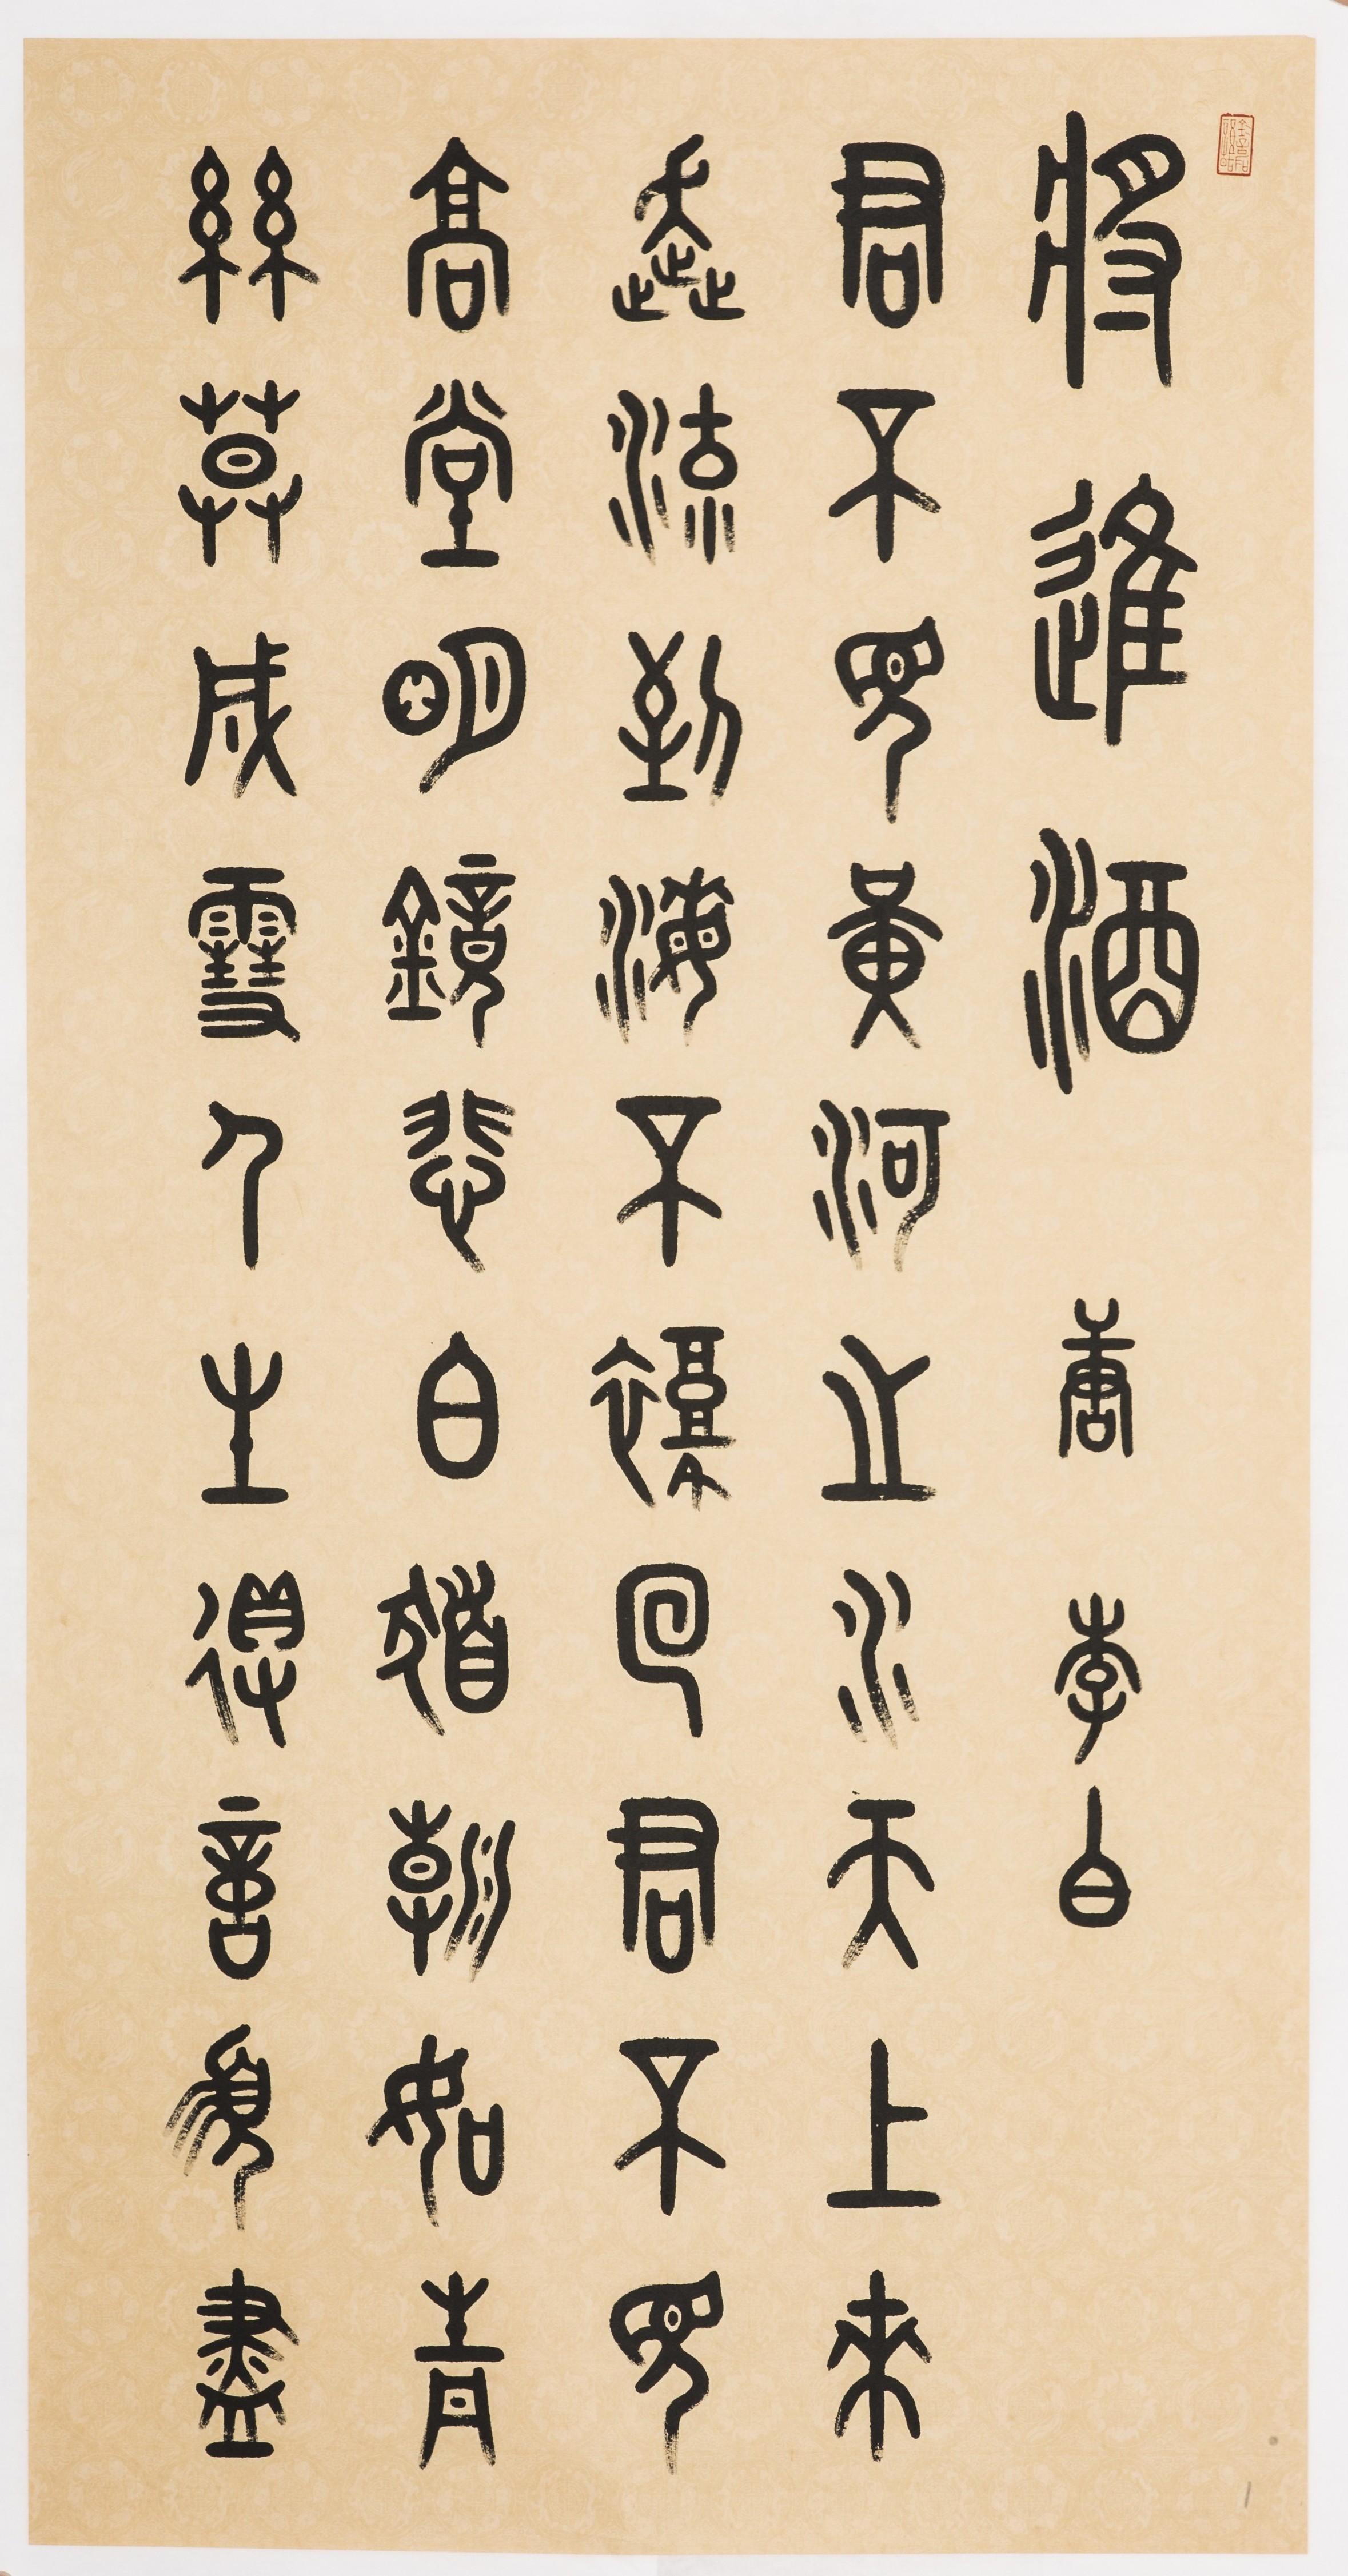 將進酒 唐 李白
君不見黃河之水天上來
奔流到海不復回君不見
高堂明鏡悲白髮朝如青
絲暮成雪人生得意須盡